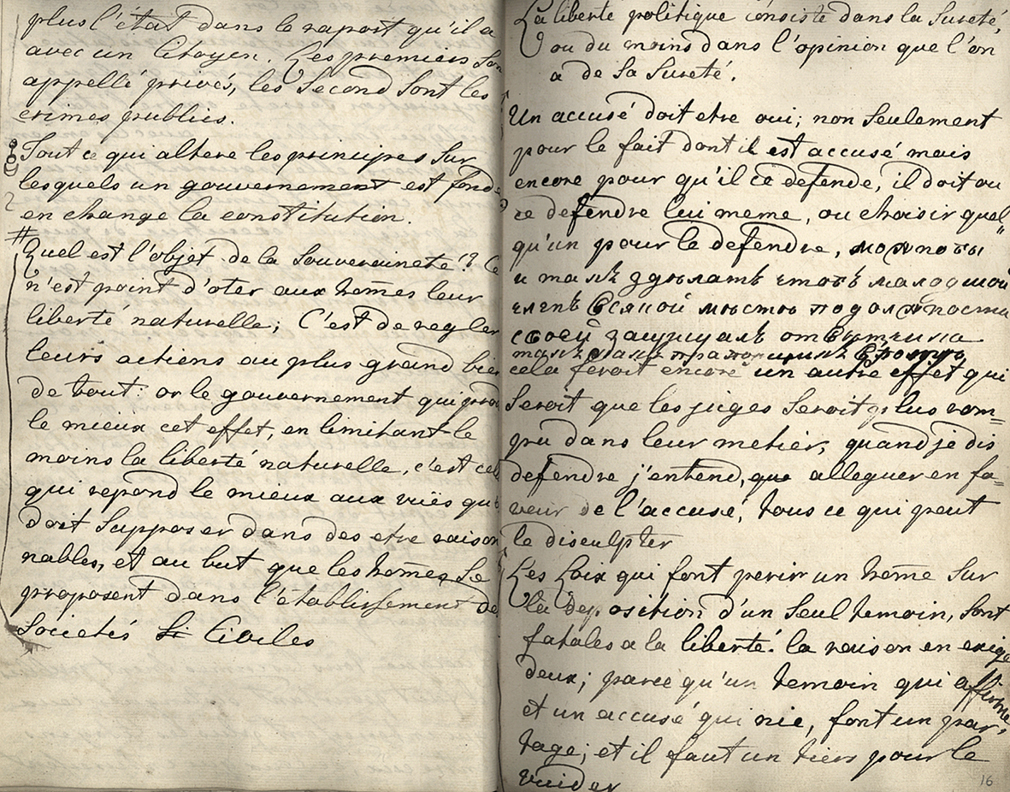 plus l'état dans le raport qu'il a
avec un Citoyen. Les premiers son
appellé privés, les Second Sont les
crimes publics.
Tout ce qui altere les principes Sur
lesquels un gouvernement est fondé
en change la constitution.
#
Quel est l'objet de la Souveraineté? Ce
n'est point d'oter aux hom̄es leur
liberté naturelle; C'est de regler
leurs actions au plus grand bien
de tout: or le gouvernement qui prod
le mieux cet effet, en limitant le
moins la liberté naturelle, c'est celu
qui repond le mieux aux vuës qu'
doit Supposer dans des etre raison
nables, et au but que les hom̄es Se
proposent dans l'établissement de
Societés Civiles
La liberté politique consiste dans la Sureté,
ou du moins dans l'opinion que l'on
a de Sa Sureté.
Un accusé doit etre oui; non Seulement
pour le fait dont il est accusé mais
encore pour qu'il ce defende, il doit ou
ce defendre lui meme, ou choisir quel
qu'un pour le defendre, можнобы
и такъ здѣлать чтобъ молодшой
членъ Всякой мѣсто по должности
своей защищалъ отвѣтчика
cela feroit encore un autre effet qui
Seroit que les juges Seroit plus rom=
pu dans leur metier, quand je dis
defendre j'entend, que alleguer en fa=
veur de l'accusé, tous ce qui peut
le disculpter
Les Loix qui font perir un hom̄e Sur
la deposition d'un Seul temoin, Sont
fatales a la liberté. la raison en exige
deux; parce qu'un temoin qui affirme
et un accusé qui nie, font un par
tage; et il faut un tiers pour le
vuider
16